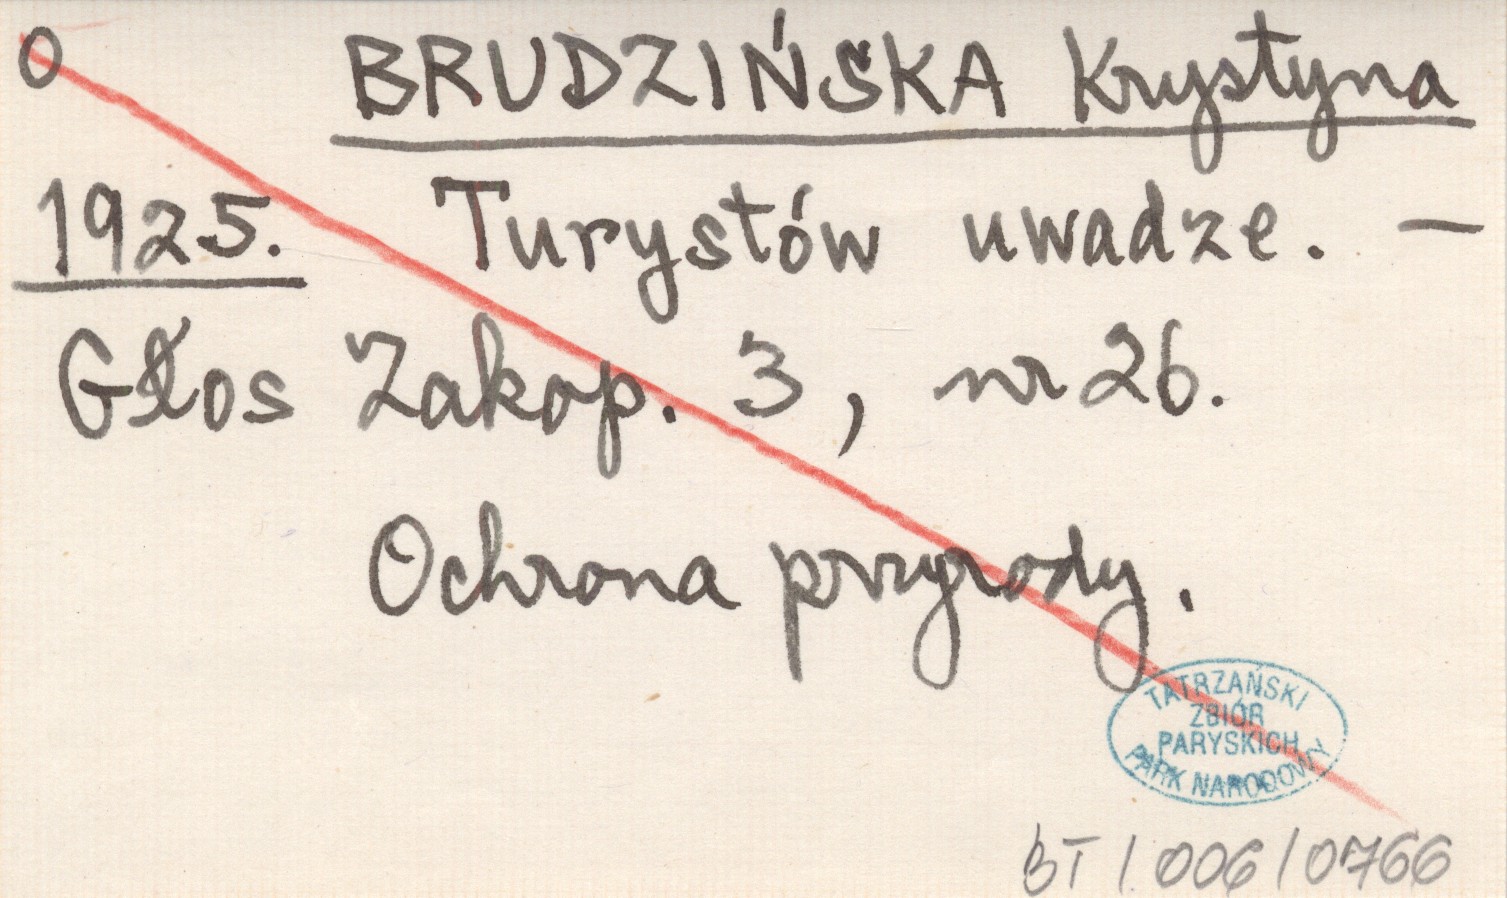 O BRUDZIŃSKA Krystyna
1925. Turystów uwadze. —
Głos Zakop. 3, nr 26.
Ochrona przyrody.
TATRZAŃSKI
ZBIÓR
PARYSKICH
PARK NARODOWY
BT / 006 / 0766